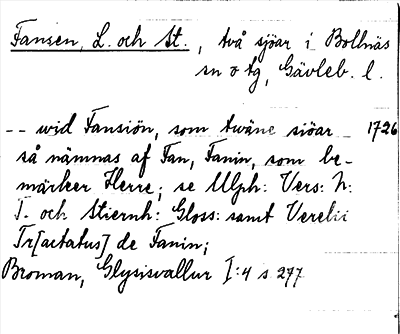 Fansen, L. och St., två sjöar i Bollnäs
sn o tg, Gävleb. l.
-- wid Fansiön, som twäne siöar -- 1726
så nämnas af Fan, Fanin, som be-
märker Herre; se Ulph: Vers: N:
T. och Stiernh: Gloss: samt Verelii
Tr[actatus] de Fanin;
Broman, Glysisvallur I:4 s 277